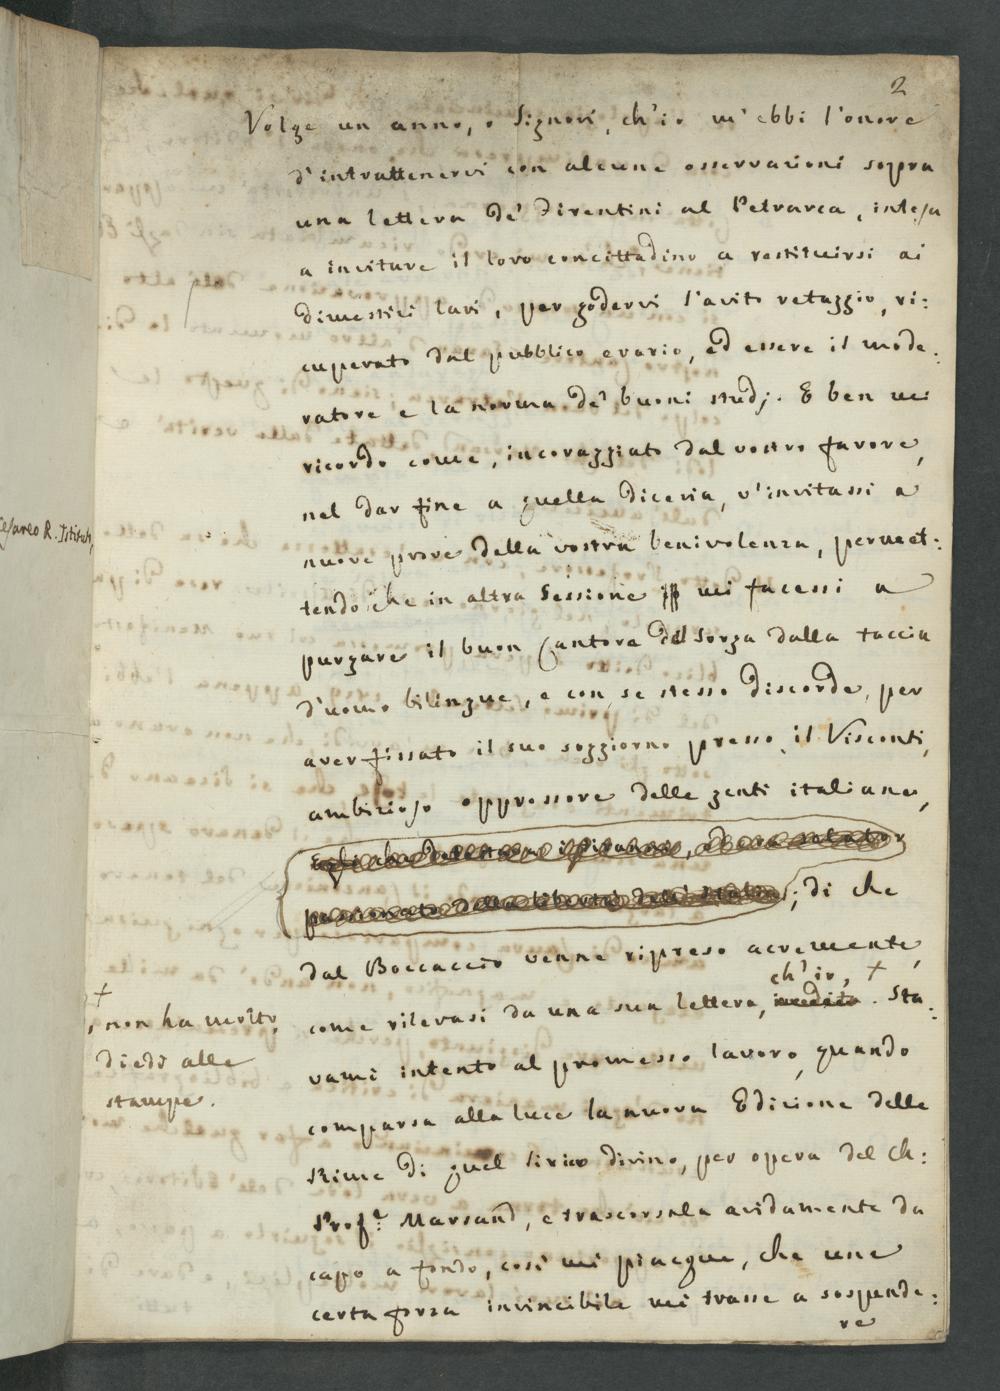 2
Volge un anno, o Signori, ch'io m'ebbi l'onore
d'intrattenervi con alcune osservazioni sopra
una lettera de' Fiorentini al Petrarca, intesa
a invitare il loro concittadino a restituirsi ai
dimestici lari, per godervi l'avito retaggio, ri:
cuperato dal pubblico erario, ed essere il mode:
ratore e la norma de' buoni studj. E ben mi
ricordo come, incoraggiato dal vostro favore,
nel dar fine a quella diceria, v'invitassi a
Cesareo R. Istituto,
nuove prove della vostra benivolenza, permet:
tendo che in altra Sessione mi facessi a
purgare il buon Cantore del Sorga dalla taccia
d'uomo bilingue, e con se stesso discorde, per
aver fissato il suo soggiorno presso il Visconti,
ambizioso oppressore delle genti italiane,
Egli che detestava i tiranni, ed era
della libertà dell'Italia; di che
dal Boccaccio venne ripreso acremente,
come rilevasi da una sua lettera, inedita ch'io, + . Sta:
+
, non ha molto,
diedi alle
stampe.
vami intento al promesso lavoro, quando
comparsa alla luce la nuova Edizione delle
Rime di quel lirico divino, per opera del Ch:
Prof.r Marsand, e trascorsala avidamente da
capo a fondo, così mi piacque, che una
certa forza invincibile mi trasse a sospende:
re